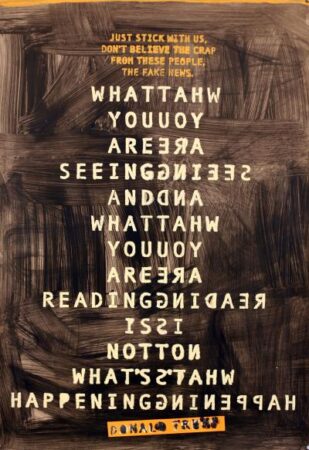 JUST STICK WITH US,
DON'T BELIEVE THE CRAP
FROM THESE PEOPLE,
THE FAKE NEWS.
WHATTAHW
YOUUOY
AREERA
SEEINGGNIEES
ANDDNA
WHATTAHW
YOUUOY
AREERA
READINGGNIDAER
ISSI
NOTTON
WHAT'SS'TAHW
HAPPENINGGNINEPPAH
DONALD TRUMP